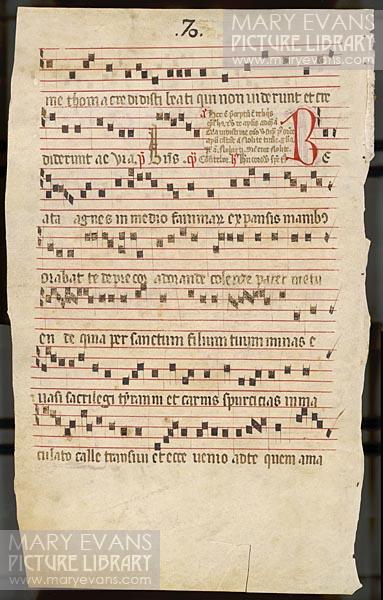 .70.
MARY EVANS
PICTURE LIBRARY
www.maryevans.com
me thoma credidisti beati qui non viderunt et cre
diderunt ae v ia. B E
ata agnes in medio flammar expansis manib9
orabat te deprecor adorande colende pater metu
en de quia per sanctum filium tuum minas e
vasi sacrilegi tyranni et carnis spurcicias inma
culato calle transivi et ecce venio ad te quem ama
MARY EVANS
PICTURE LIBRARY
www.maryevans.com